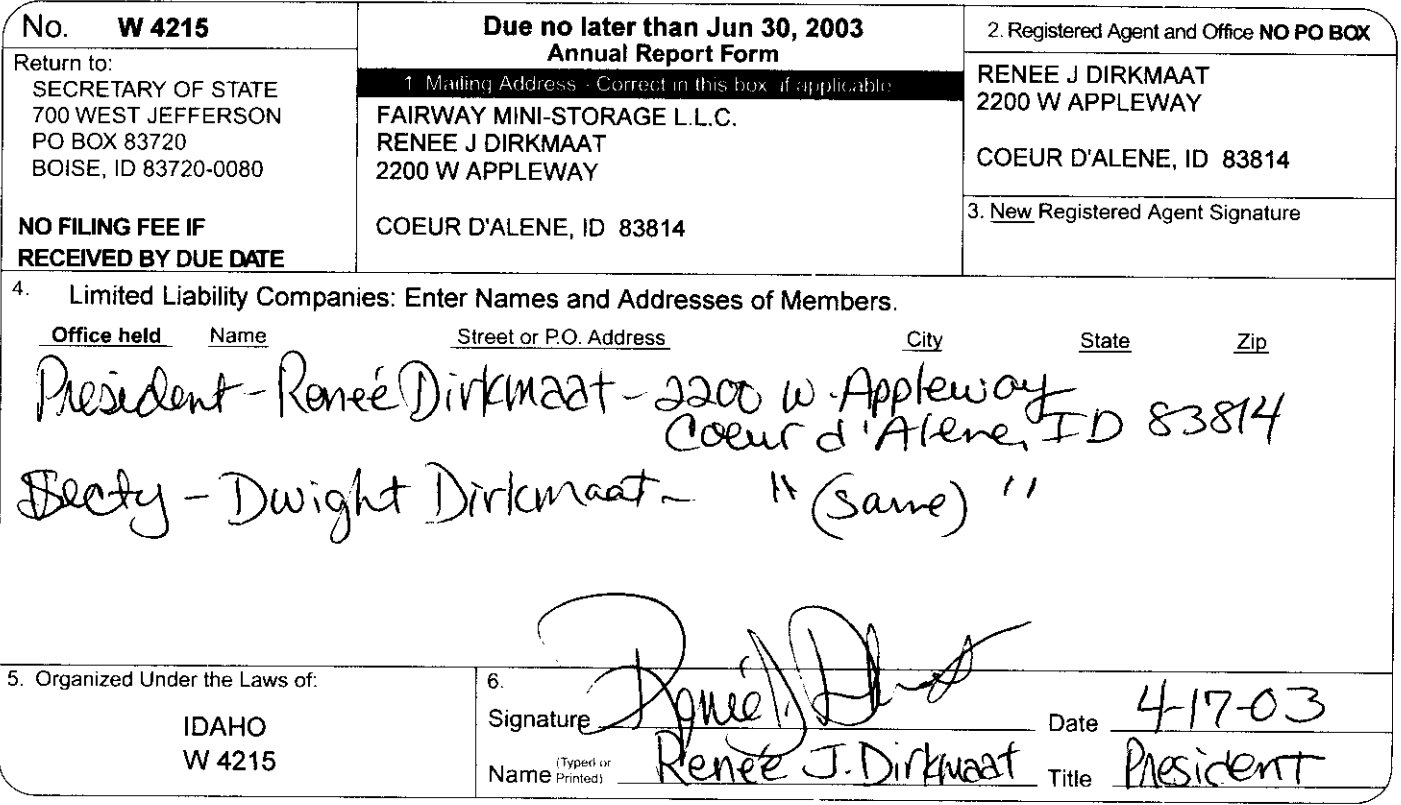 No. W 4215
Return to:
SECRETARY OF STATE
700 WEST JEFFERSON
PO BOX 83720
BOISE, ID 83720-0080
NO FILING FEE IF
RECEIVED BY DUE DATE
Due no later than Jun 30, 2003
Annual Report Form
1. Mailing Address - Correct in this box if applicable
FAIRWAY MINI-STORAGE L.L.C.
RENEE J DIRKMAAT
2200 W APPLEWAY
COEUR D'ALENE, ID 83814
2. Registered Agent and Office NO PO BOX
RENEE J DIRKMAAT
2200 W APPLEWAY
COEUR D'ALENE, ID 83814
3. New Registered Agent Signature
4. Limited Liability Companies: Enter Names and Addresses of Members.
Office held Name Street or P.O. Address City State Zip
President - Reneé Dirkmaat - 2200 W. Appleway
Coeur d'Alene, ID 83814
Secty - Dwight Dirkmaat - " (same) "
5. Organized Under the Laws of:
IDAHO
W 4215
6.
Signature Reneé J. Dirkmaat Date 4-17-03
Name (Typed or Printed) Reneé J. Dirkmaat Title President